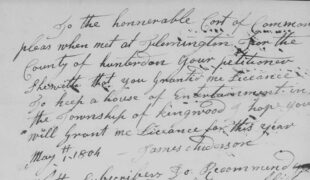 To the honnerable Cort of Common
pleas when met at Flemington for the
County of hunterdon your petitioner
Sheweth that you Grant me Licance
To keep a house of Entertainment in
the Township of kingwood I hope you
will Grant me Licance for this year
May 1th 1804 James
Subscribers To Recommend